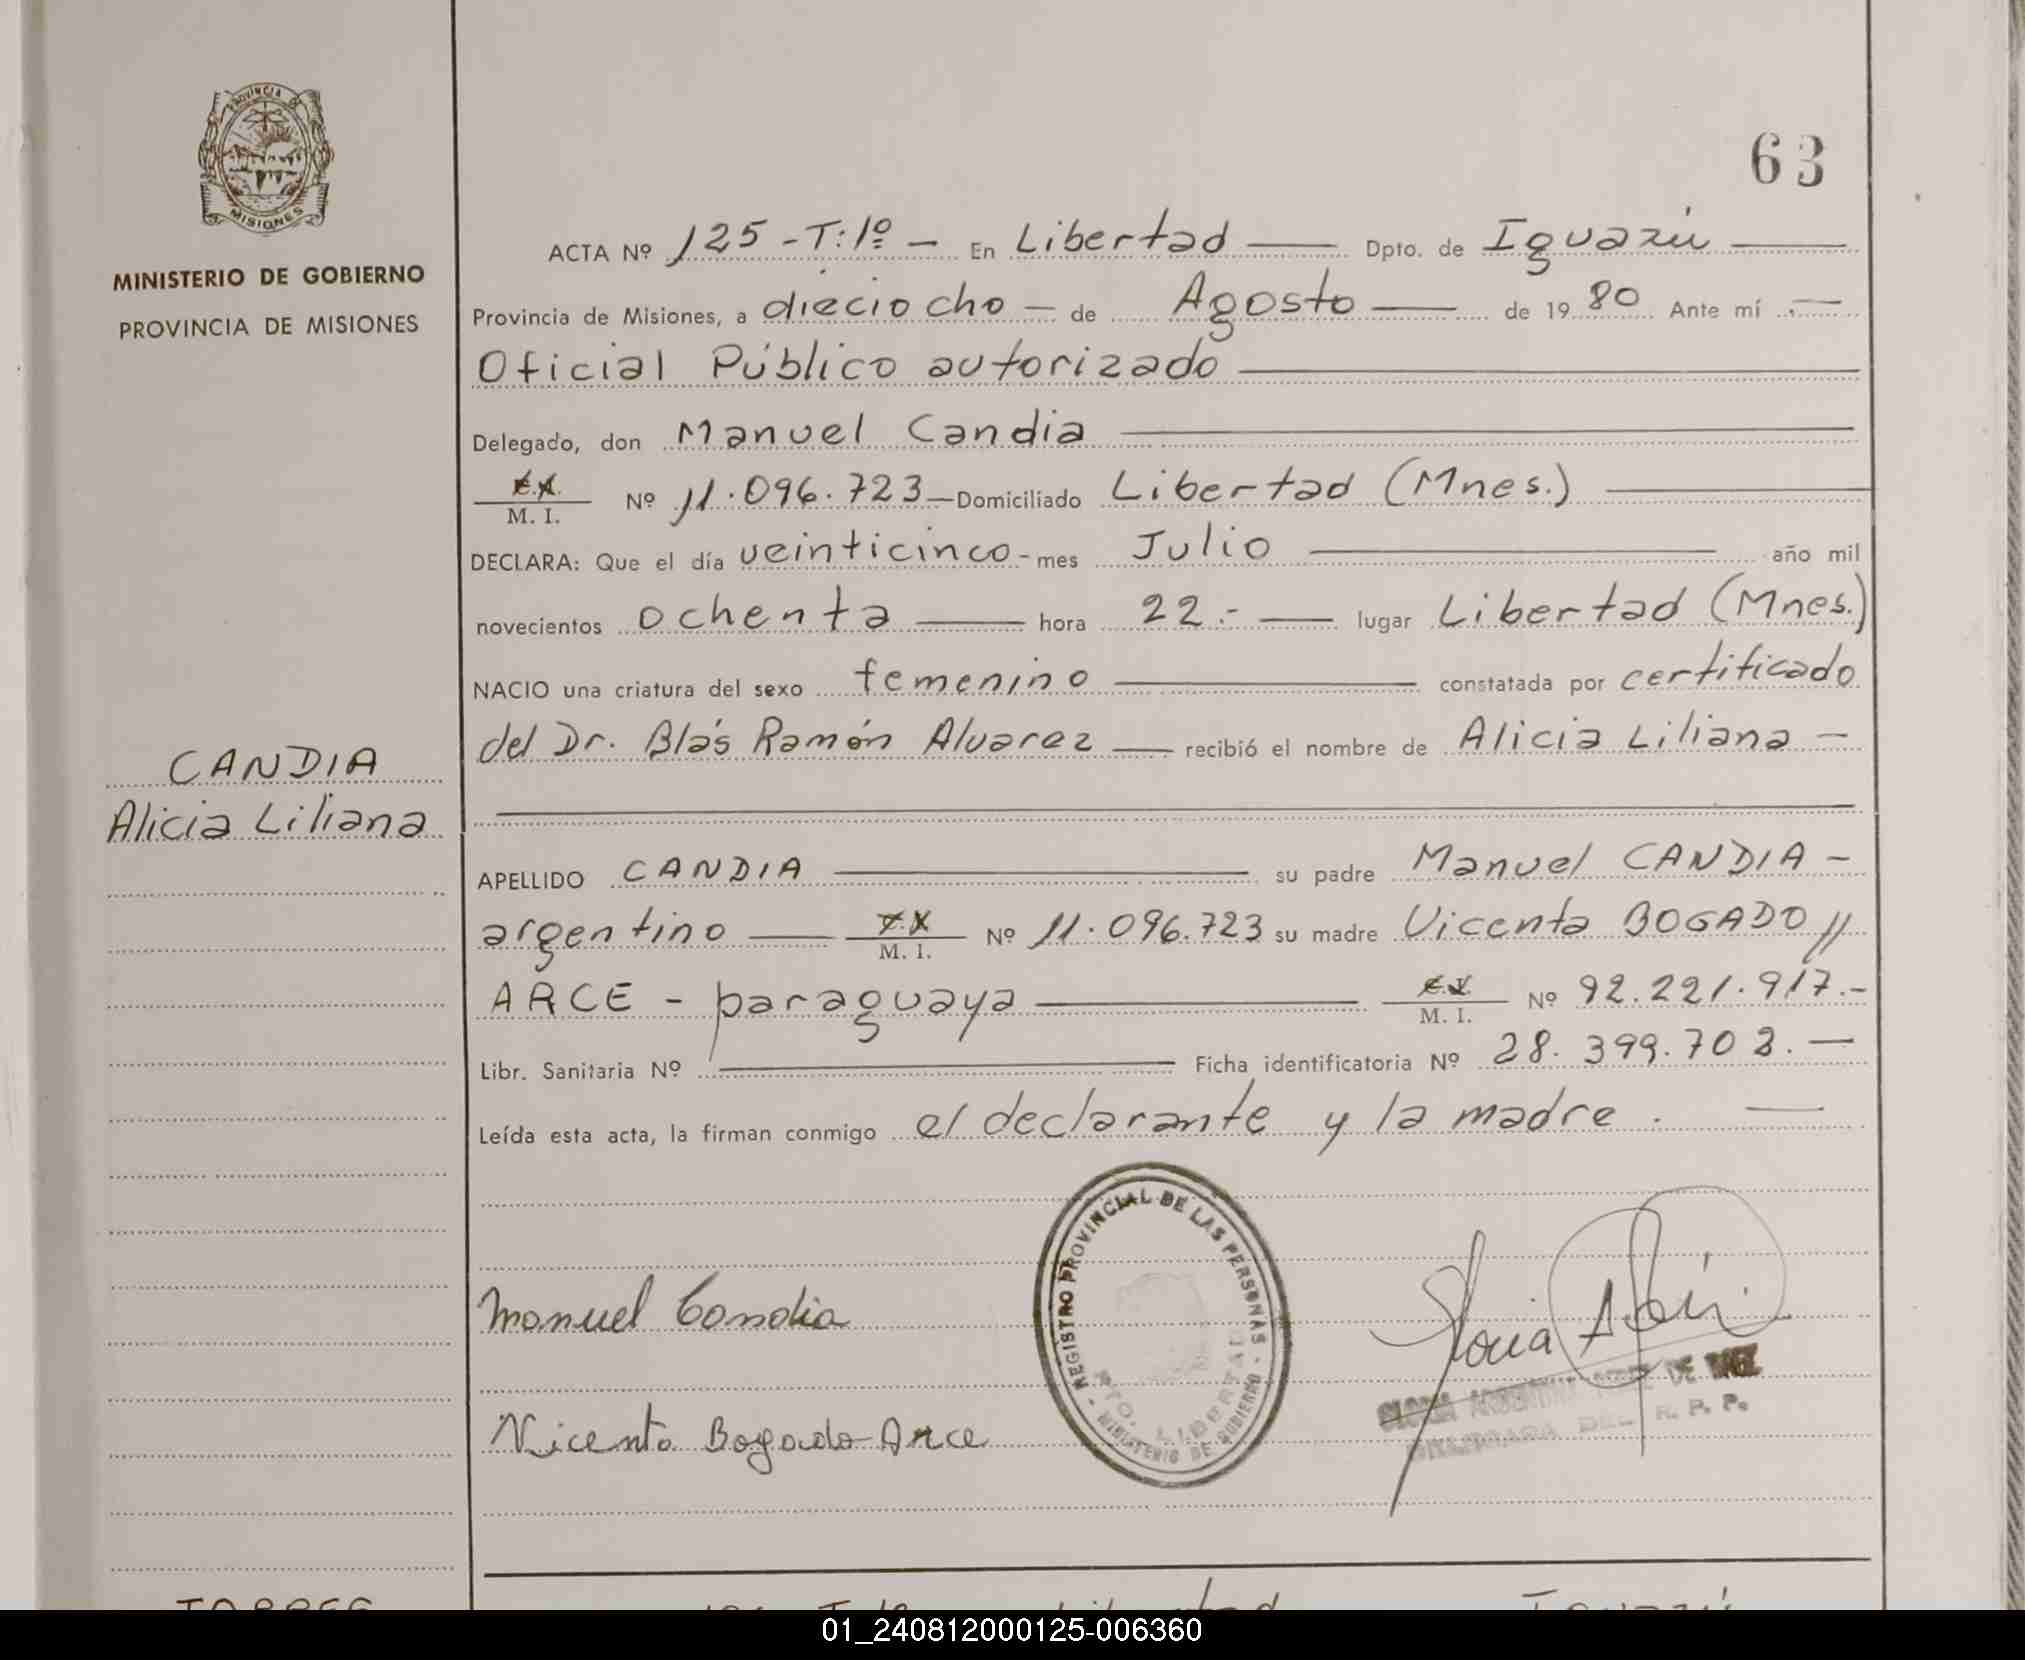 PROVINCIA DE
MISIONES
MINISTERIO DE GOBIERNO
PROVINCIA DE MISIONES
CANDIA
Alicia Liliana
63
ACTA Nº 125 - T: 1º - En Libertad Dpto. de Iguazú
Provincia de Misiones, a dieciocho - de Agosto de 19 80 Ante mí
Oficial Público autorizado
Delegado, don Manuel Candia
M. I. Nº 11.096.723 - Domiciliado Libertad (Mnes.)
DECLARA: Que el día veinticinco - mes Julio año mil
novecientos ochenta hora 22.- lugar Libertad (Mnes.)
NACIO una criatura del sexo femenino constatada por certificado
del Dr. Blás Ramón Alvarez recibió el nombre de Alicia Liliana -
APELLIDO CANDIA su padre Manuel CANDIA -
argentino M. I. Nº 11.096.723 su madre Vicenta BOGADO //
ARCE - paraguaya M. I. Nº 92.221.917.-
Libr. Sanitaria Nº Ficha identificatoria Nº 28.399.703.-
Leída esta acta, la firman conmigo el declarante y la madre.
REGISTRO PROVINCIAL DE LAS PERSONAS
- MINISTERIO DE GOBIERNO -
LIBERTAD
Manuel Candia
Vicenta Bogado Arce
Gloria
GLORIA DE
DEL R. P. P.
TORRES
Libertad Iguazú
01_240812000125-006360